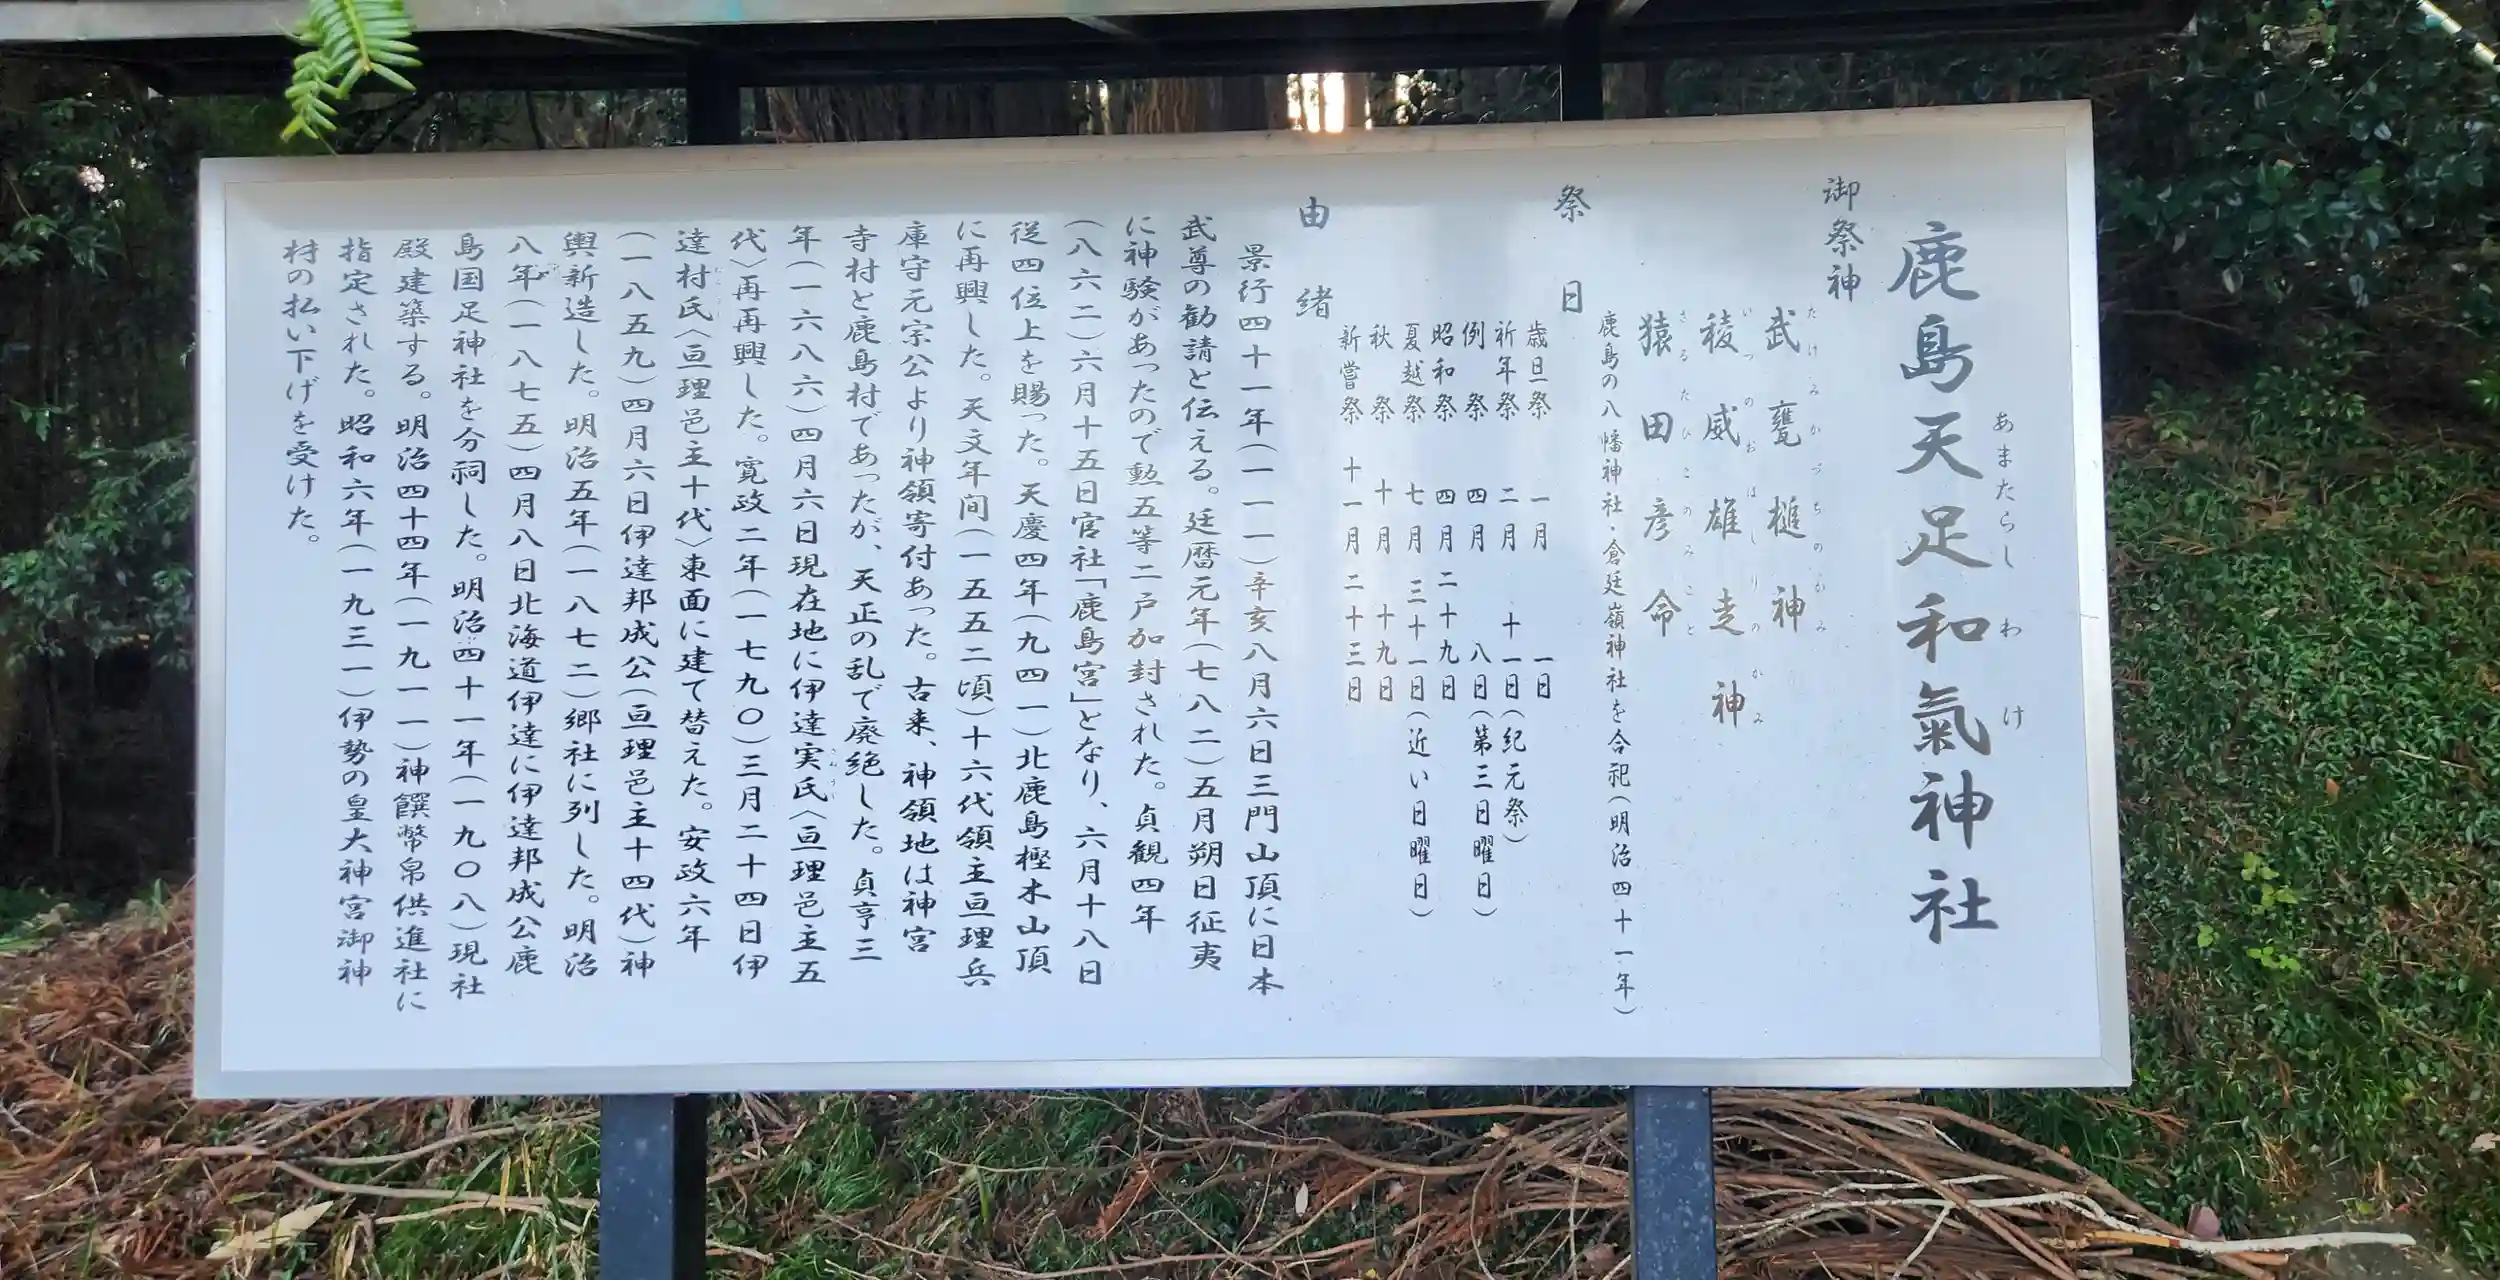 鹿島天足和氣神社
あまたらし わけ
御祭神
武甕槌神
たけみかづちのかみ
稜威雄走神
いつのおはしりのかみ
猿田彦命
さるたひこのみこと
鹿島の八幡神社・倉廷嶺神社を合祀(明治四十一年)
祭日
歳旦祭 一月 一日
祈年祭 二月 十一日(紀元祭)
例祭 四月 八日(第三日曜日)
昭和祭 四月二十九日
夏越祭 七月 三十一日(近い日曜日)
秋祭 十月 十九日
新嘗祭 十一月 二十三日
由緒
景行四十一年(一一一)辛亥八月六日三門山頂に日本
武尊の勧請と伝える。廷暦元年(七八二)五月朔日征夷
に神験があったので勲五等二戸加封された。貞観四年
(八六二)六月十五日官社「鹿島宮」となり、六月十八日
従四位上を賜った。天慶四年(九四一)北鹿島樫木山頂
に再興した。天文年間(一五五二頃)十六代領主亘理兵
庫守元宗公より神領寄付あった。古来、神領地は神宮
寺村と鹿島村であったが、天正の乱で廃絶した。貞亨三
年(一六八六)四月六日現在地に伊達実氏〈亘理邑主五
代〉再再興した。寛政二年(一七九〇)三月二十四日伊
達村氏〈亘理邑主十代〉東面に建て替えた。安政六年
(一八五九)四月六日伊達邦成公(亘理邑主十四代)神
輿新造した。明治五年(一八七二)郷社に列した。明治
八年(一八七五)四月八日北海道伊達に伊達邦成公鹿
島国足神社を分祠した。明治四十一年(一九〇八)現社
殿建築する。明治四十四年(一九一一)神饌幣帛供進社に
指定された。昭和六年(一九三一)伊勢の皇大神宮御神
材の払い下げを受けた。